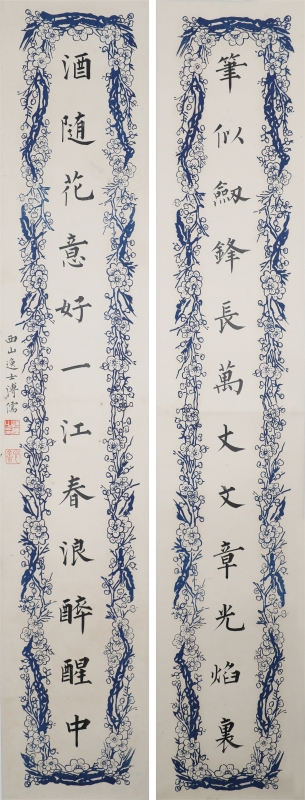 筆似劒鋒長萬丈文章光焰裏
酒隨花意好一江春浪醉醒中
西山逸士溥儒